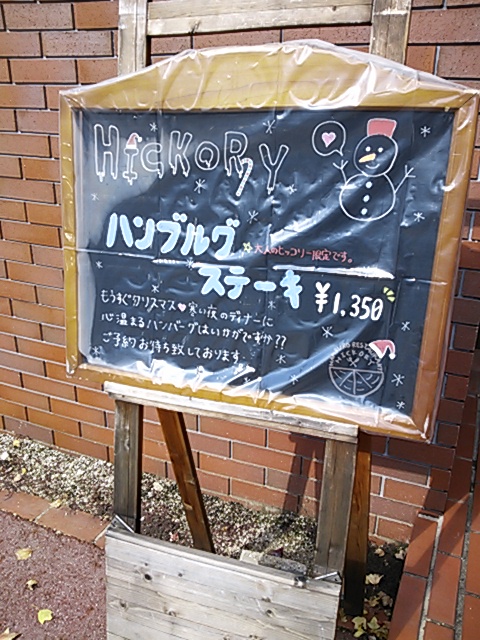 HICKORY
ハンブルグ
☆大人のヒッコリー限定です。
ステーキ ¥1,350
もうすぐクリスマス♥寒い夜のディナーに
心温まるハンバーグはいかがですか??
ご予約お待ち致しております。
HICKORY